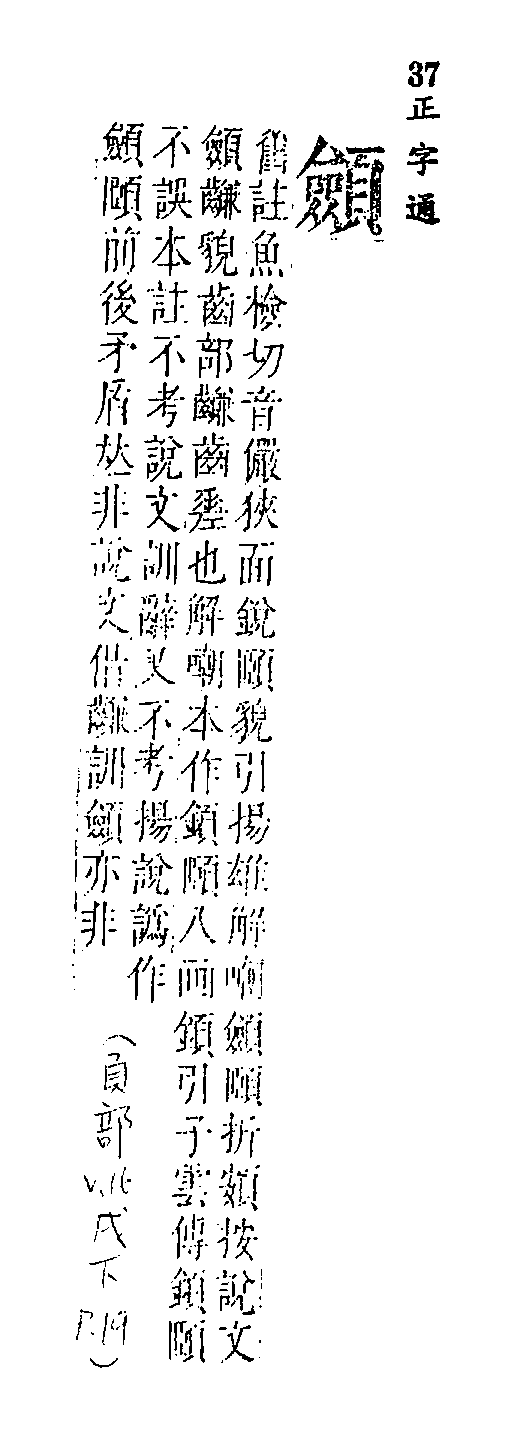 37 正字通
顩
舊註魚檢切音儼狹面銳頤貌引揚雄解嘲顩頤折頞按說文
顩䶢貌齒部䶢齒差也解嘲本作顉頤八面顉引子雲傳顉頤
不誤本註不考說文訓辭又不考揚說譌作
顩頤前後矛盾𠀤非說文借䶢訓顩亦非
(頁部 v.16 戌下 P.19)